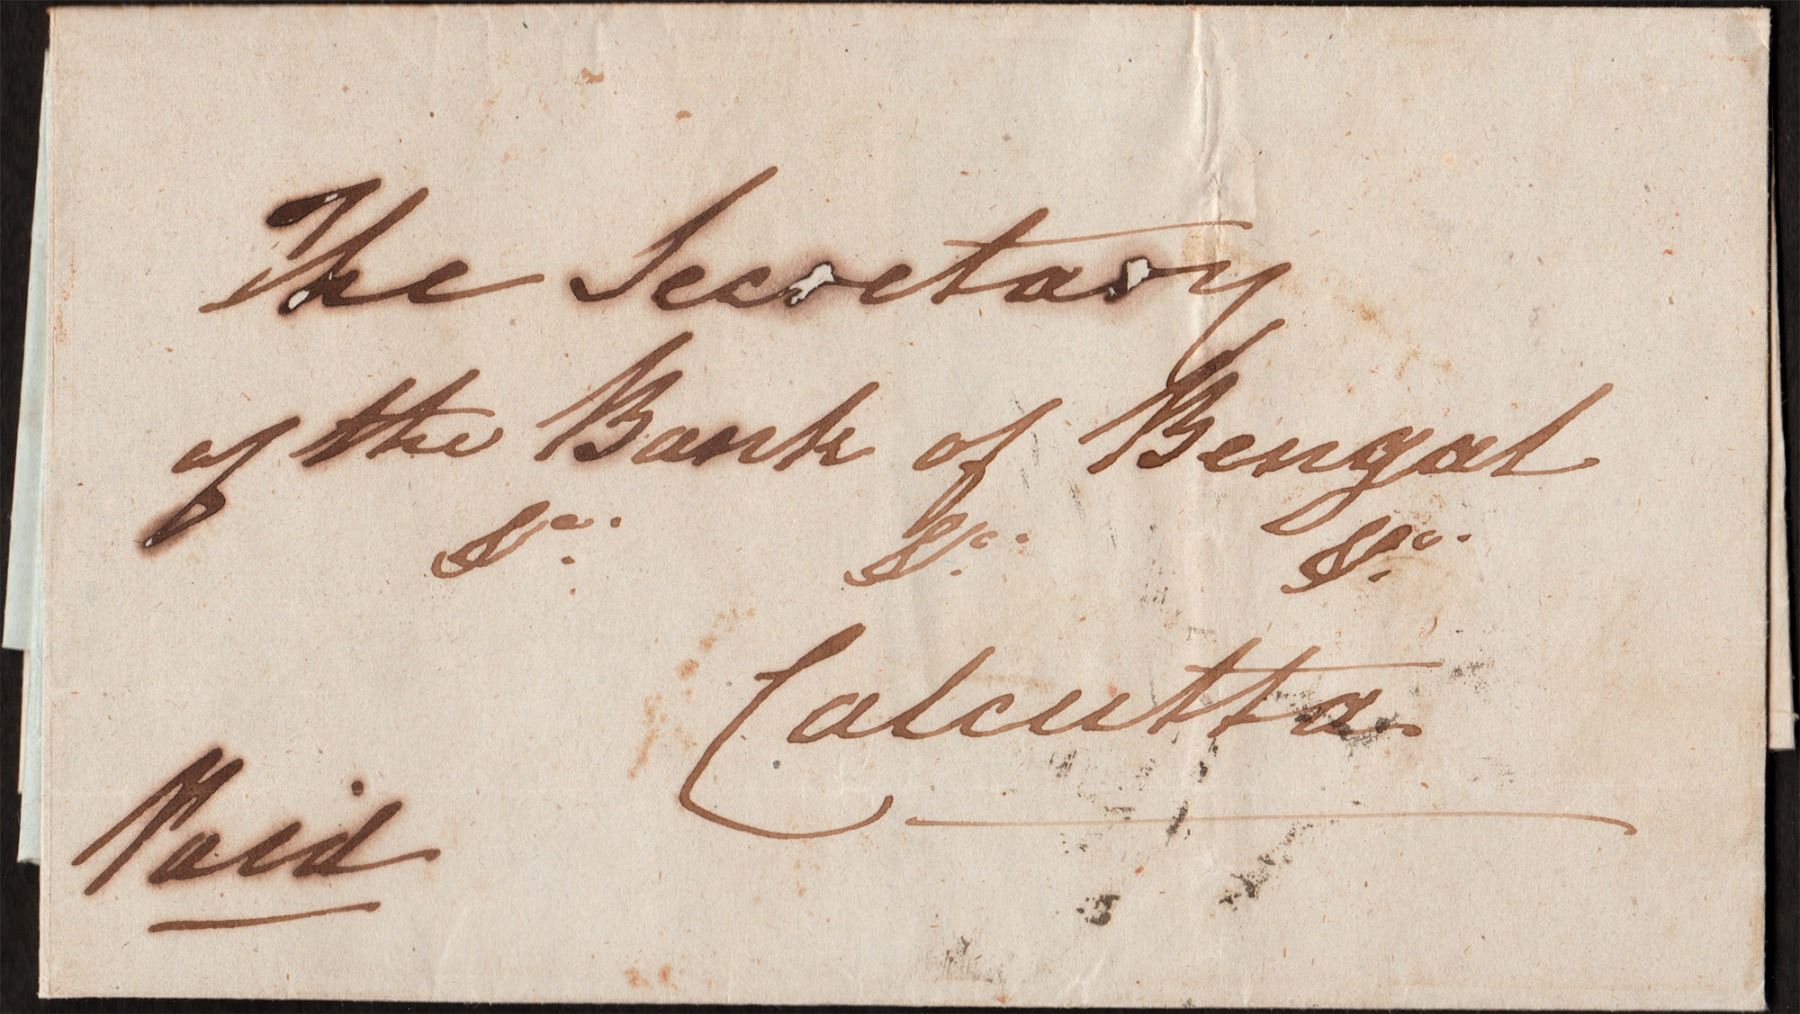 The Secretary
of the Bank of Bengal
&c. &c. &c.
Calcutta
Paid